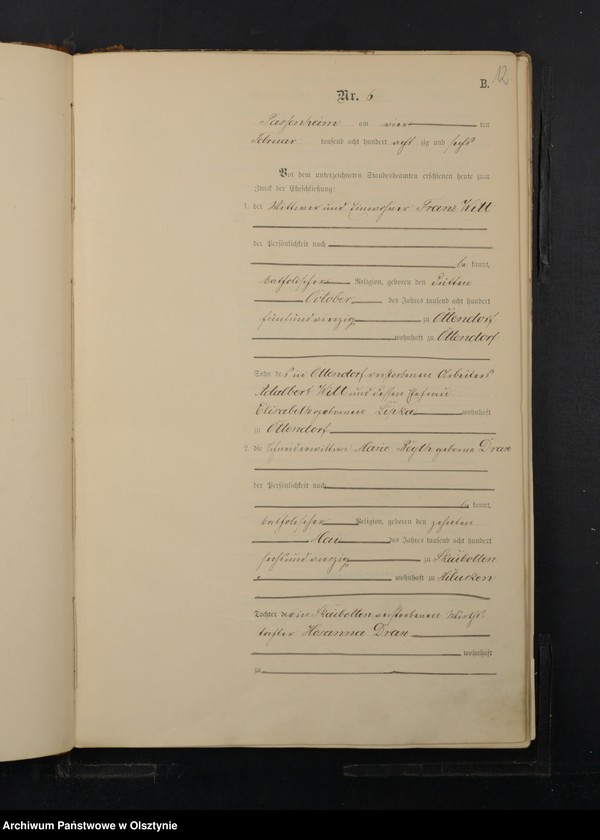 12
B.
Nr. 6
Passenheim am vier ten
Februar tausend acht hundert acht zig und sechs
Vor dem unterzeichneten Standesbeamten erschienen heute zum
Zweck der Eheschließung:
1. der Wittwer und Einwohner Franz Witt
der Persönlichkeit nach
be kannt,
katholischer Religion, geboren den dritten
October des Jahres tausend acht hundert
fünfundvierzig zu Ottendorf
wohnhaft zu Ottendorf
Sohn des in Ottendorf verstorbenen Arbeiters
Adalbert Witt und dessen Ehefrau
Elisabeth geborenen wohnhaft
zu Ottendorf
2. die Marie geborne Drax
der Persönlichkeit nach
be kannt,
katholischer Religion, geboren den zehnten
Mai des Jahres tausend acht hundert
sechsundvierzig zu Skaibotten
wohnhaft zu
Tochter der in Skaibotten verstorbenen Wirths
tochter Drax
wohnhaft
zu
Archiwum Państwowe w Olsztynie